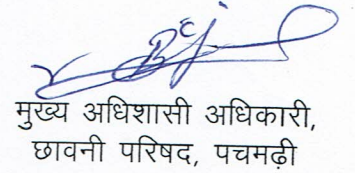 मुख्य अधिशासी अधिकारी,
छावनी परिषद, पचमढ़ी